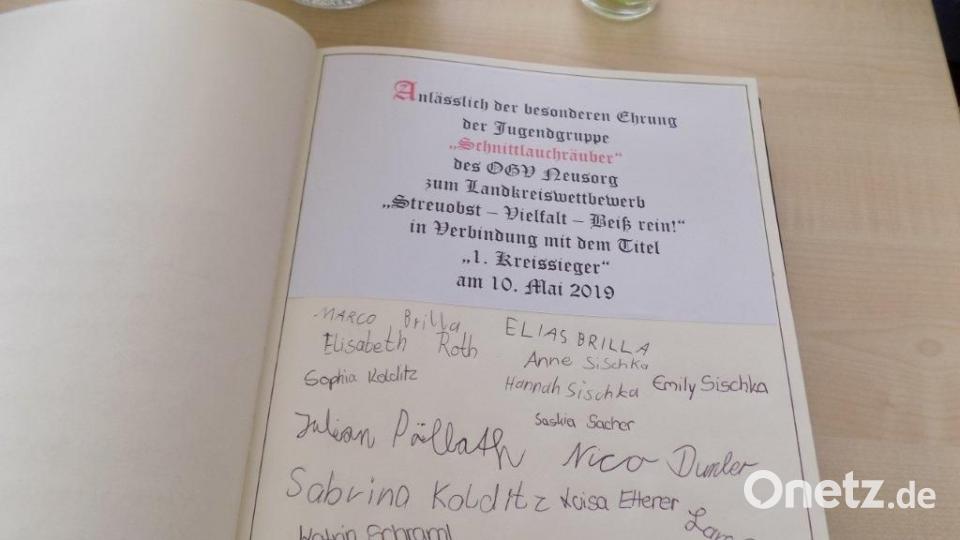 Anlässlich der besonderen Ehrung
der Jugendgruppe
„Schnittlauchräuber“
des OGV Neusorg
zum Landkreiswettbewerb
„Streuobst – Vielfalt – Beiß rein!“
in Verbindung mit dem Titel
„1. Kreissieger“
am 10. Mai 2019
MARCO Brilla ELIAS BRILLA
Elisabeth Roth Anne Sischka
Sophia Kolditz Hannah Sischka Emily Sischka
Saskia Sacher
Julian Pöllath Nico Dumler
Sabrina Kolditz Etterer
Katrin Schraml
Onetz.de